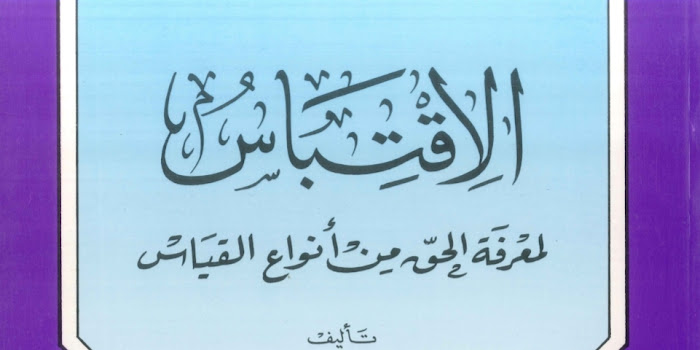 الِاقْتِبَاسُ
لمعرفَة الحقّ مِنْ أنواع القيَاسْ
تأليف